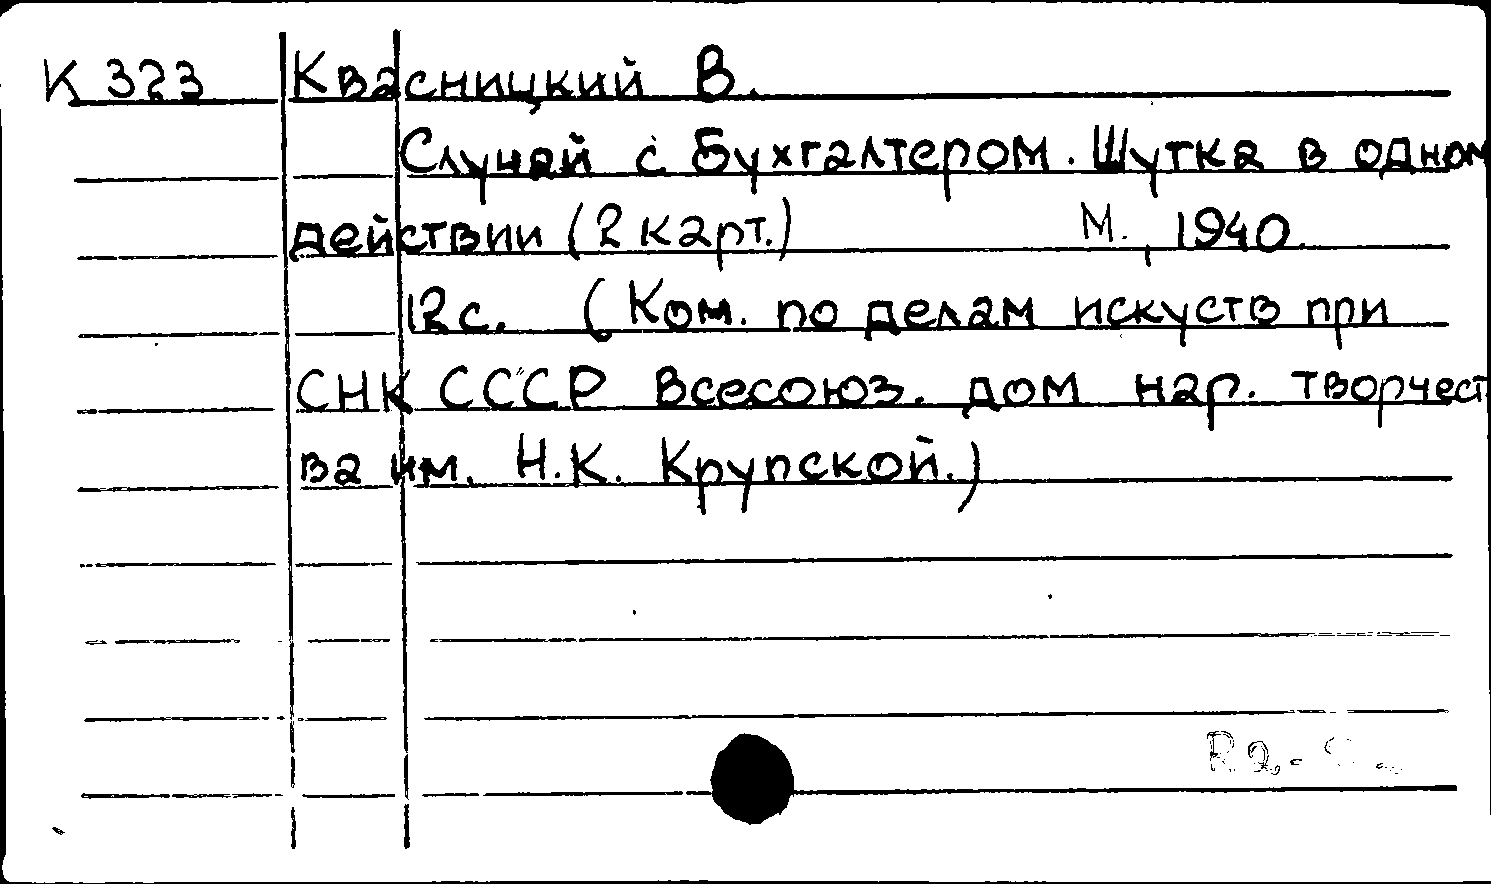 К 323 Квасницкий В.
Случай с бухгалтером. Шутка в одном
действии (2 карт.) М., 1940.
12 с. (Ком. по делам искуств при
СНК СССР Всесоюз. дом нар. творчест
ва им. Н.К. Крупской.)